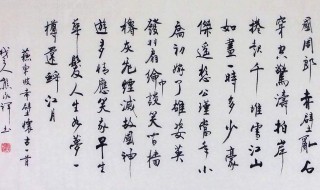 國周郎赤壁亂石
穿空驚濤拍岸
捲起千堆雪江山
如畫一時多少豪
傑遙想公瑾當年小
喬初嫁了雄姿英
發羽扇綸巾談笑間檣
櫓灰飛煙滅故國神
遊多情應笑我早生
華髮人生如夢一
樽還酹江月
蘇東坡赤壁懷古一首